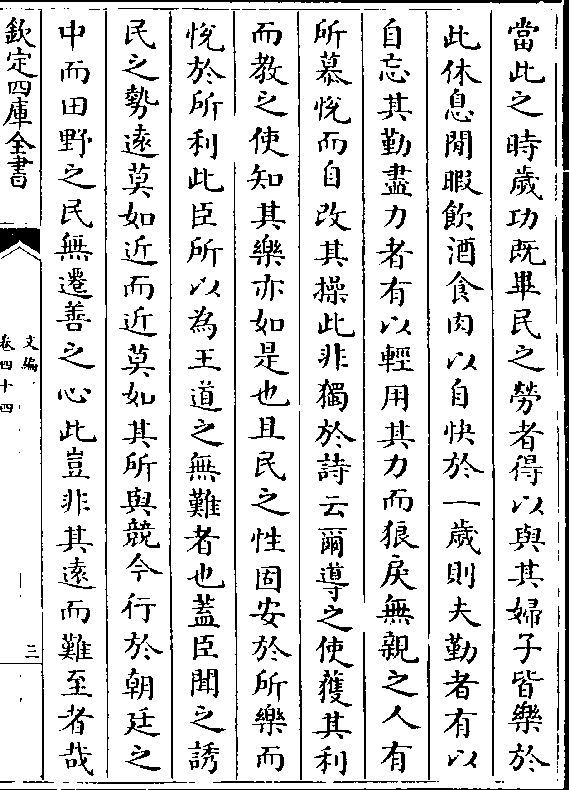 當此之時歲功既畢民之勞者得以與其婦子皆樂於
此休息閒暇飲酒食肉以自快於一歲則夫勤者有以
自忘其勤盡力者有以輕用其力而狼戾無親之人有
所慕悅而自改其操此非獨於詩云爾導之使獲其利
而教之使知其樂亦如是也且民之性固安於所樂而
悅於所利此臣所以為王道之無難者也蓋臣聞之誘
民之勢遠莫如近而近莫如其所與競今行於朝廷之
中而田野之民無遷善之心此豈非其遠而難至者哉
欽定四庫全書
文編
卷四十四
三